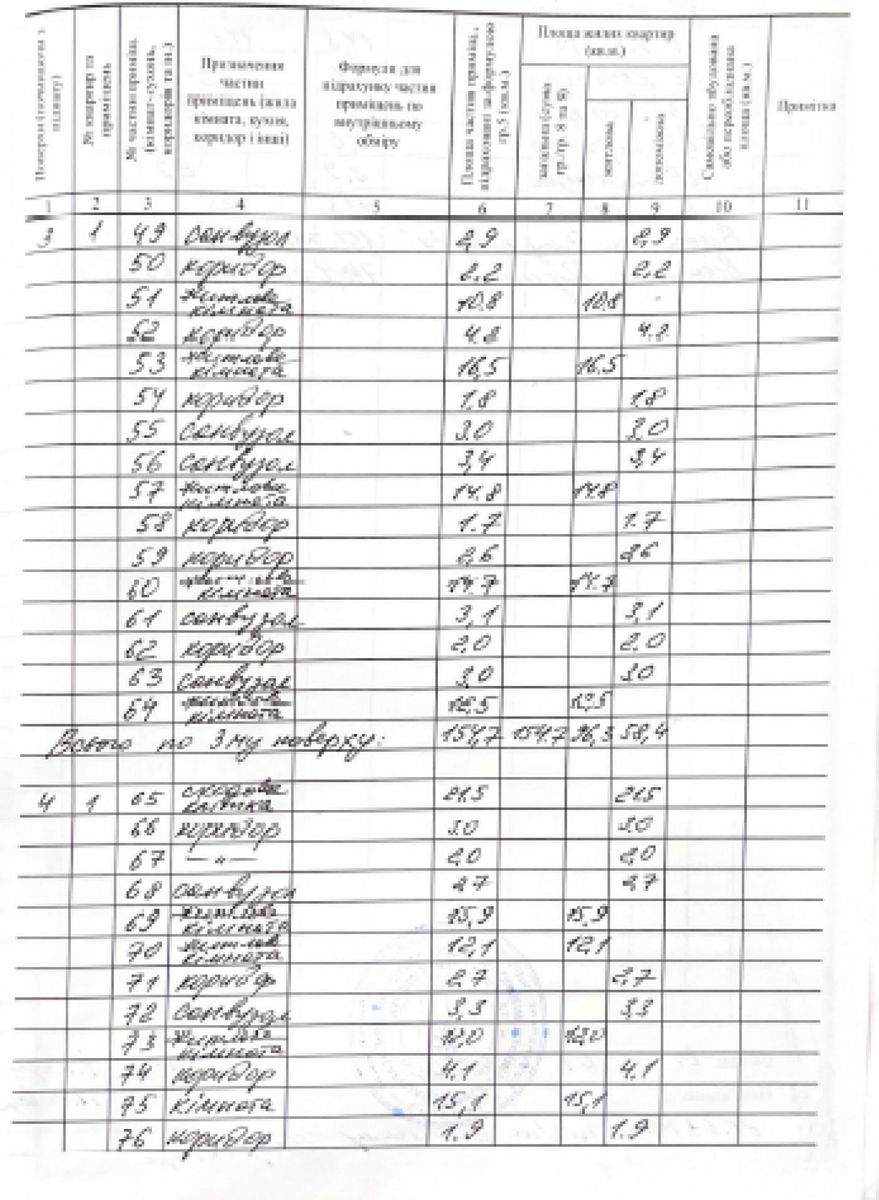 Поверхи (починаючи з підвалу)
№ квартир та приміщень
№ частин приміщ. (кімнат-кухонь, коридорів та ін.)
Призначення частин приміщень (жила кімната, кухня, коридор і інші)
Формули для підрахунку частин приміщень по внутрішньому обміру
Площа частин приміщ., підрахованої за формулою гр.5 (кв.м.)
Площа жилих квартир (кв.м.)
загальна (сума гр./гр. 8 та 9)
житлова
допоміжна
Самовільно збудована або переобладнана площа (кв.м.)
Примітка
1 2 3 4 5 6 7 8 9 10 11
3 1 49 санвузол 2,9 2,9
50 коридор 2.2 2,2
51 житлова кімната 10.8 10.8
52 коридор 4.8 4.8
53 житлова кімната 16,5 16.5
54 коридор 1.8 1.8
55 санвузол 3,0 3,0
56 санвузол 3,4 3,4
57 житлова кімната 14.8 14.8
58 коридор 1.7 1.7
59 коридор 2,6 2,6
60 житлова кімната 14.7 14.7
61 санвузол 3,1 3,1
62 коридор 2,0 2,0
63 санвузол 3,0 3,0
64 житлова кімната
Всього по 3му поверху: 154,7 154.7 96,3 58,4
4 1 65 сходова клітика 21.5 21.5
66 коридор 3.0 3.0
67 — " — 2,0 2,0
68 санвузол 2.7 2.7
69 житлова кімната 15,9 15,9
70 житлова кімната 12,1 12,1
71 коридор 2,7 2,7
72 санвузол 3,3 3,3
73 житлова кімната
74 коридор 4.1 4.1
75 кімната 15,1 15,1
76 коридор 1.9 1.9